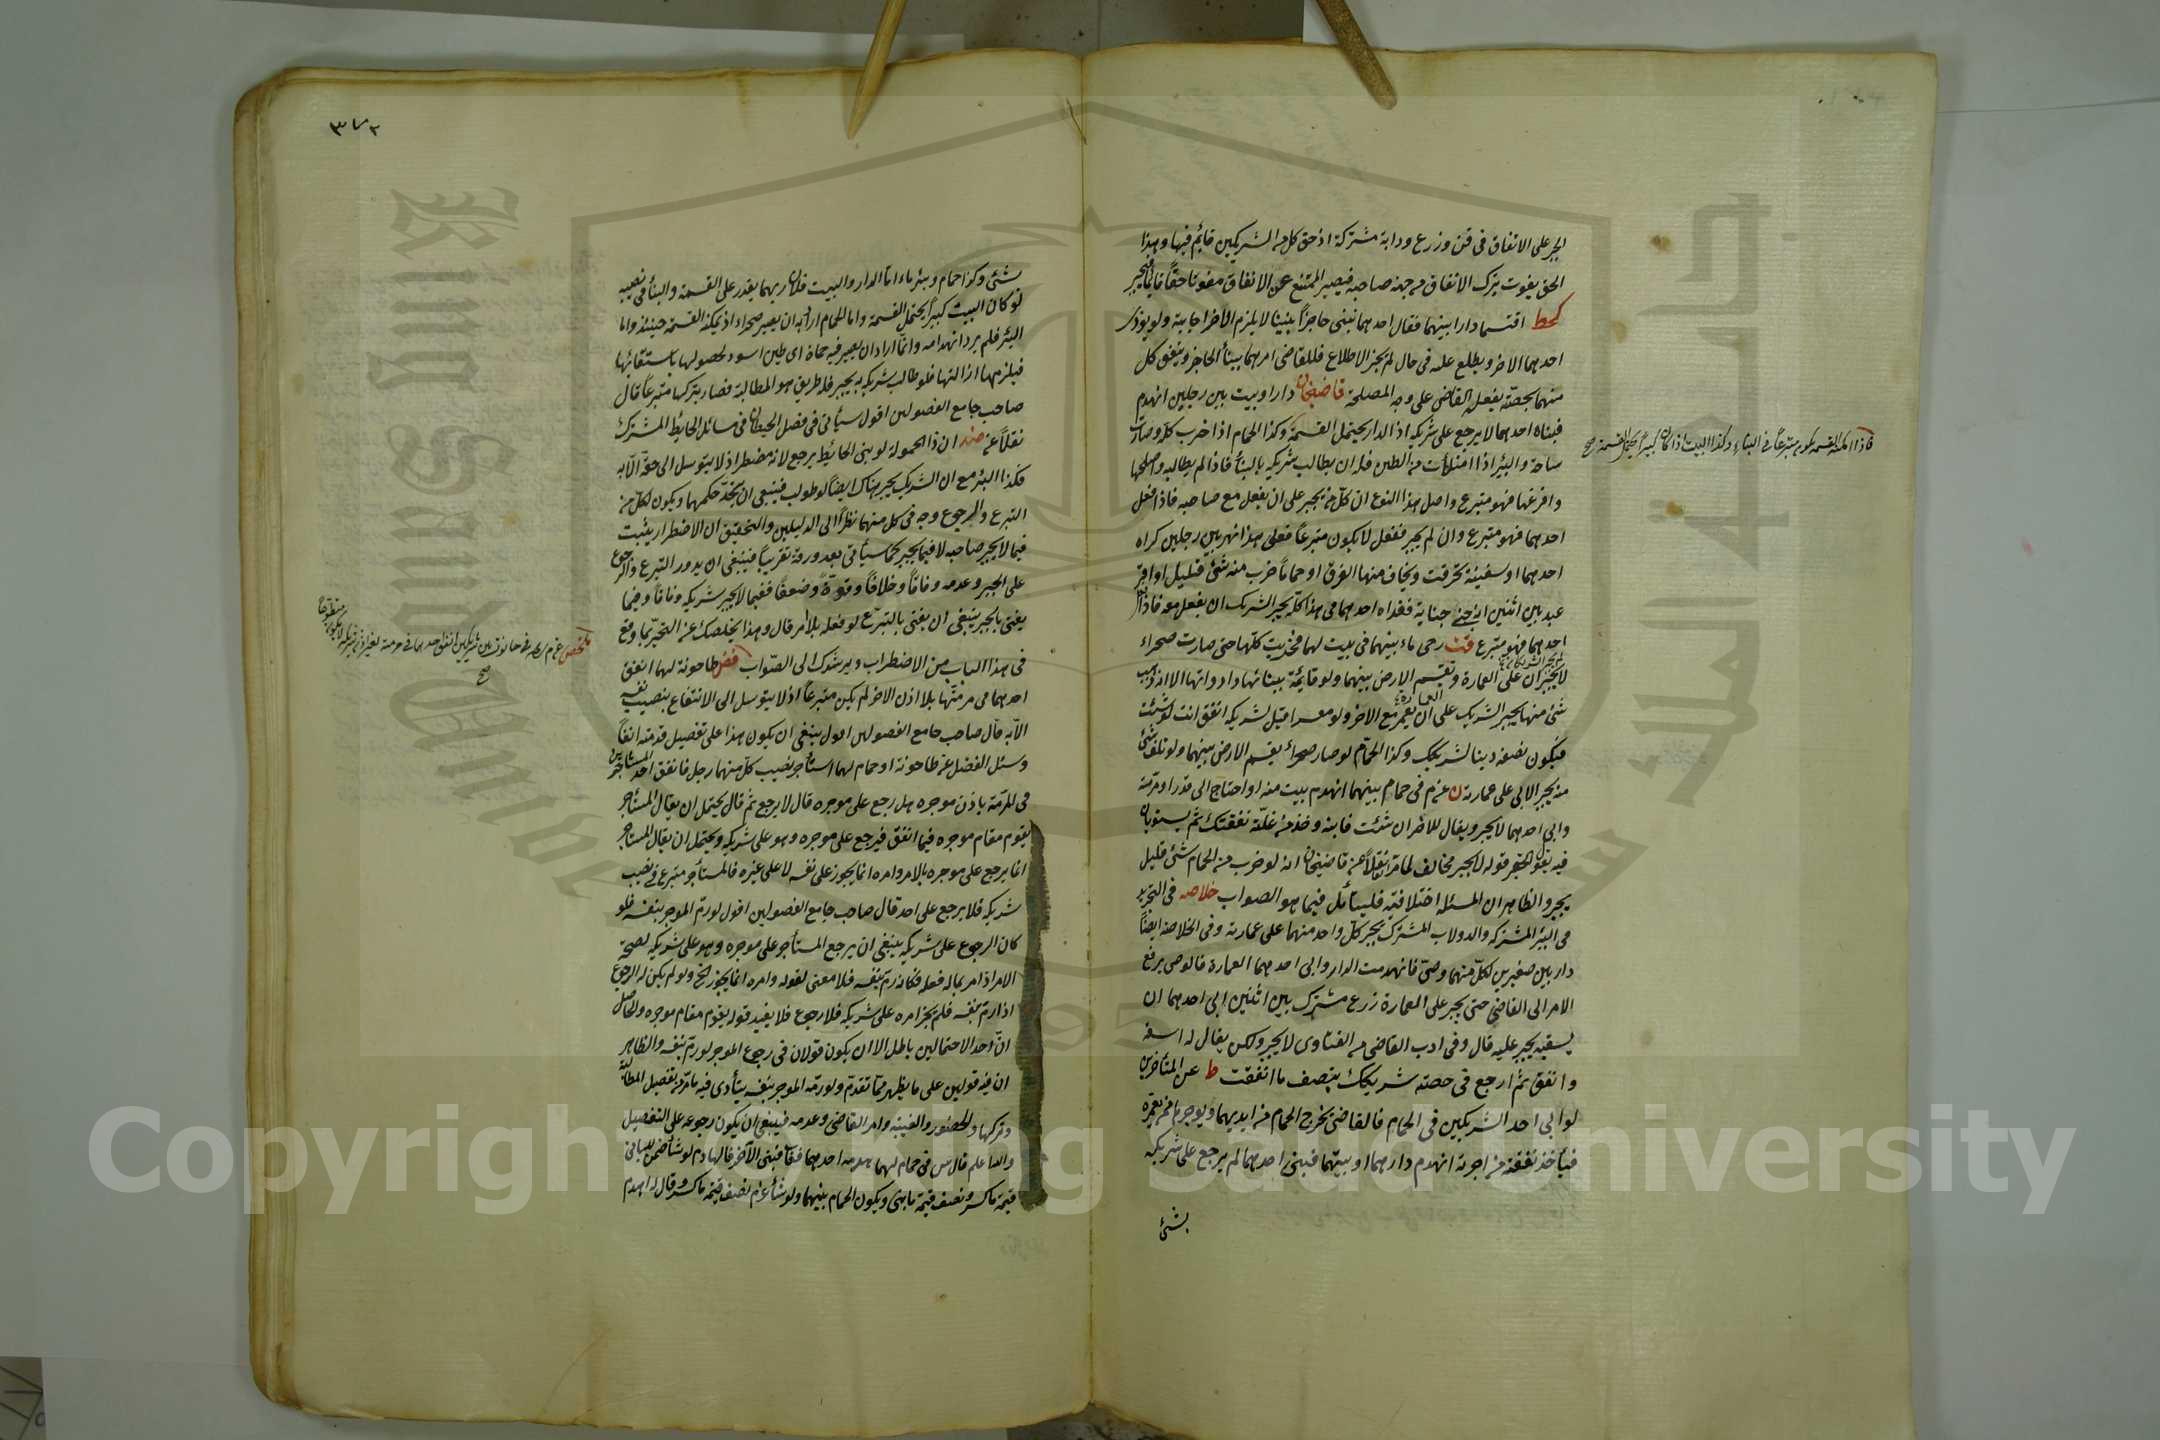 الجبر على الانفاق فى قن وزرع ودابة مشتركة اذ حق كل من الشريكين قايم فيها وبهذا
الحق يفوت بترك الانفاق من جهة صاحبه فيصير الممتنع عن الانفاق مفوتا حقاً قايماً فيجبر
اقتسما دارا بينهما فقال احدهما نبنى حاجزاً بيننا لا يلزم الآخر اجابته ولو يؤذى
احدهما الآخر ويطلع عليه فى حال لم يجز الاطلاع فللقاضى امرهما ببناء الحاجز وينفق كل
منهما بحصته يفعله القاضى على وجه المصلحة قاضيخان دار او بيت بين رجلين انهدم
فبناه احدهما لا يرجع على شريكه اذ الدار يحتمل القسمة وكذا الحمام اذا خرب كله وصار
فاذا امكنه القسمة يكون متبرعاً فى البناء وكذا البيت اذا كان كبيراً يحتمل القسمة صح
ساحة والبئر اذا امتلأت من الطين فله ان يطالب شريكه بالبناء فاذا لم يطالبه واصلحها
وافرغها فهو متبرع واصل هذا النوع ان كل من يجبر على ان يفعل مع صاحبه فاذا فعل
احدهما فهو متبرع وان لم يجبر ففعل لا يكون متبرعاً فعلى هذا نهر بين رجلين كراه
احدهما او سفينة تخرقت ويخاف منها الغرق او حماماً خرب منه شئ قليل او
عبد بين اثنين جنى جناية ففداه احدهما فى هذا كله يجبر الشريك ان يفعل معه فاذا فعل
احدهما فهو متبرع رحى ماء بينهما فى بيت لهما فخربت كلها حتى صارت صحراء
لا يجبران على العمارة وتقسم الارض بينهما ولو قائمة ببنائها وادواتها الا انه ذهب
شئ منها يجبر الشريك على ان يعمر مع الآخر ولو معسرا قيل لشريكه انفق انت لو شئت
فيكون نصفه دينا لشريكك وكذا الحمام لو صار صحراء يقسم الارض بينهما ولو تلف شئ
منه يجبر الآبى على عمارته ن عن م فى حمام بينهما انهدم بيت منه او احتاج الى قدر او مرمة
وابى احدهما لا يجبر ويقال للآخر ان شئت فابنه وخذ من غلته نفقتك ثم يستويان
فيه يقول الحقير قوله لا يجبر مخالف لما مر نقلاً عن قاضيخان انه لو خرب من الحمام شئ قليل
يجبر والظاهر ان المسئلة اختلافية فليتأمل فيما هو الصواب خلاصه فى التجريد
فى البئر المشتركة والدولاب المشترك يجبر كل واحد منهما على عمارته وفى الخلاصة ايضاً
دار بين صغيرين لكل منهما وصى فانهدمت الدار وابى احدهما العمارة فالوصى يرفع
الامر الى القاضى حتى يجبر على العمارة زرع مشترك بين اثنين ابى احدهما ان
يسقيه يجبر عليه قال وفى ادب القاضى من الفتاوى لا يجبر ولكن يقال له اسقه
وانفق ثم ارجع فى حصته شريكك بنصف ما انفقت ط عن المتأخرين
لو ابى احد الشريكين فى الحمام فالقاضى يخرج الحمام من ايديهما ويؤجره ثم يعمره
فيأخذ نفقته من اجرته انهدم دارهما او بيتهما فبنى احدهما لم يرجع على شريكه
بشئ
٣٧٢
بشئ وكذا حمام وبئر ماء اما الدار والبيت فلان ربهما يقدر على القسمة والبناء فى نصيبه
لو كان البيت كبيراً يحتمل القسمة واما الحمام اراد به ان يصير صحراء اذ يمكنه القسمة حينئذ واما
البئر فلم يرد انهدامه وانما اراد ان يصير فيه حماة اى طين اسود لحصولها باستقائها
فيلزمهما ازالتها فلو طالب شريكه به يجبر فله طريق هو المطالبة فصار بتركها متبرعاً قال
صاحب جامع الفصولين اقول سيأتى فى فصل الحيطان فى مسائل الحائط المشترك
نقلاً عن ان ذا الحمولة لو بنى الحائط يرجع لانه مضطر اذ لا يتوسل الى حقه الا به
فكذا البئر مع ان الشريك يجبر هناك ايضاً لو طولب فينبغى ان يتحد حكمهما ويكون لكل من
التبرع والرجوع وجه فى كل منهما نظراً الى الدليلين والتحقيق ان الاضطرار يثبت
فيما لا يجبر صاحبه لا فيما يجبر كما سيأتى بعد ورقة تقريباً فينبغى ان يدور التبرع والرجوع
على الجبر وعدمه وفاقاً وخلافاً وقوة وضعفاً ففيما لا يجبر شريكه وفاقاً وفيما
يفتى بالجبر ينبغى ان يفتى بالتبرع لو فعله بلا امر قال وهذا يخلصك عن التحير بما وقع
فى هذا الباب من الاضطراب ويرشدك الى الصواب فض طاحونة لهما انفق
احدهما فى مرمتها بلا اذن الآخر لم يكن متبرعاً اذ لا يتوسل الى الانتفاع بنصيب نفسه
الا به قال صاحب جامع الفصولين اقول ينبغى ان يكون هذا على تفصيل قدمته انفاً
وسئل الفضل عن طاحونة او حمام لهما استأجر نصيب كل منهما رجل فانفق احد المستأجرين
فى المرمة باذن موجره هل رجع على موجره قال لا يرجع ثم قال يحتمل ان يقال المستأجر
يقوم مقام موجره فيما انفق فيرجع على موجره وهو على شريكه ويحتمل ان يقال المستاجر
انما يرجع على موجره بالامر وامره انما يجوز على نفسه لا على غيره فالمستأجر متبرع فى نصيب
شريكه فلا يرجع على احد قال صاحب جامع الفصولين اقول لو رم الموجر بنفسه فلو
كان الرجوع على شريكه ينبغى ان يرجع المستأجر على موجره وهو على شريكه لصحة
الامر اذ امر بما له فعله فكانه رم بنفسه فلا معنى لقوله وامره انما يجوز الخ ولو لم يكن له الرجوع
اذا رم بنفسه فلم يجز امره على شريكه فلا رجوع فلا يفيد قوله يقوم مقام موجره والحاصل
ان احد الاحتمالين باطل الا ان يكون قولان فى رجوع الموجر لو رم بنفسه والظاهر
ان فيه قولين على ما يظهر مما تقدم ولو رمه الموجر بنفسه يتأدى فيه ما مر من تفصيل المطالبة
وتركها والحضور والغيبة وامر القاضى وعدمه فينبغى ان يكون رجوعه على التفصيل
والله اعلم قال فى حمام لهما هدمه احدهما فبنى الآخر فالهادم لو شاء ضمن للبانى
قيمة ما كسر ونصف قيمة ما بنى ويكون الحمام بينهما ولو شاء غرم نصف قيمة ما كسر وقال له اهدم